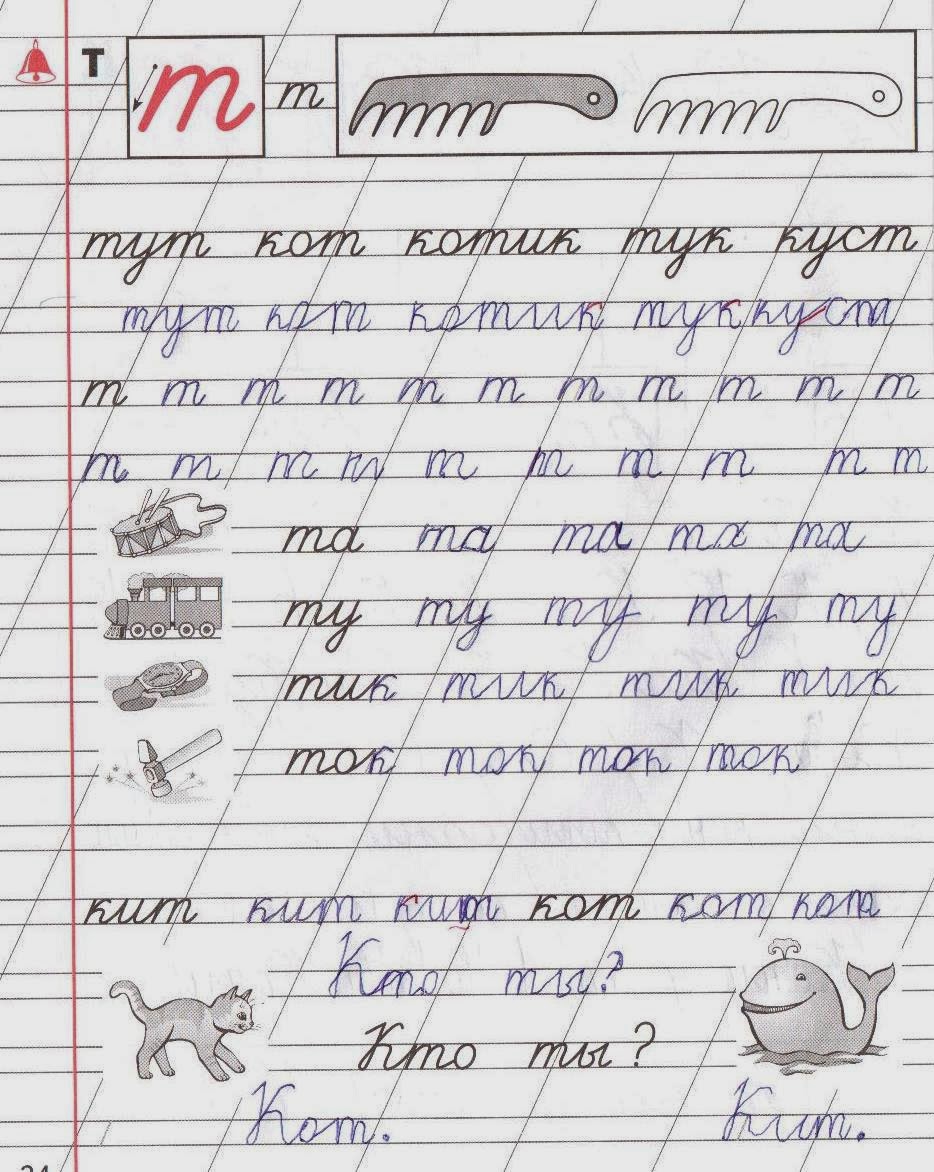 Т т т
тут кот котик тук куст
тут кот котик тук куст
т т т т т т т т т т т
т т т т т т т т т т
та та та та та
ту ту ту ту ту
тик тик тик тик
ток ток ток ток
кит кит кит кот кот кот
Кто ты?
Кто ты?
Кот. Кит.